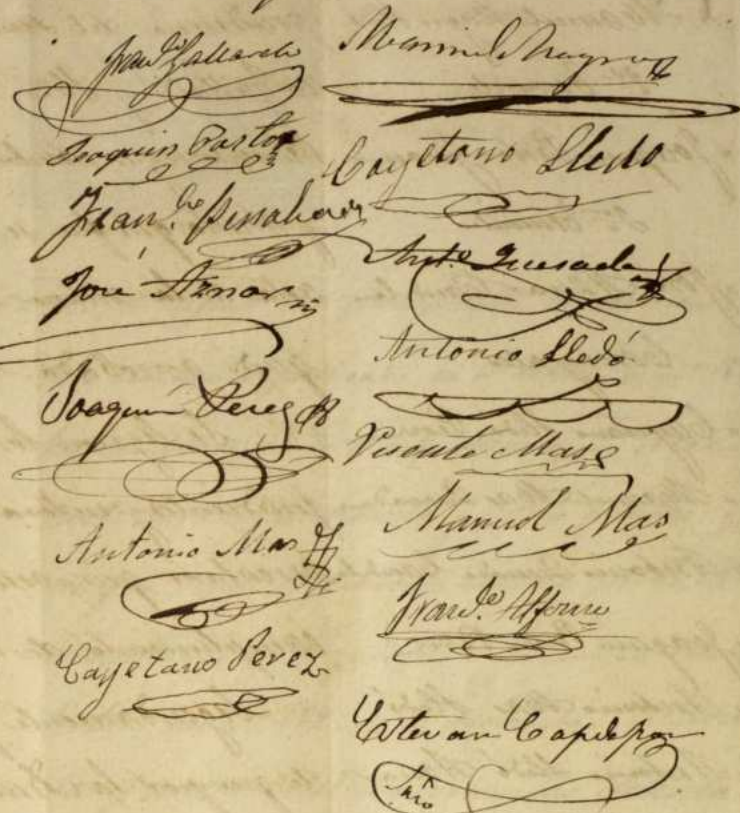 Fran.co Gallardo
Joaquin Pastor
Fran.co Penalva
José Aznar
Joaquin Perez
Antonio Mas
Cayetano Perez
Manuel
Cayetano Lledo
Ant.o Quesada
Antonio Lledó
Vicente Mas
Manuel Mas
Fran.co Alfonso
Estevan Capdepon
Srio